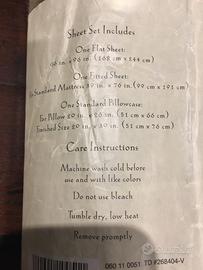 Sheet Set Includes
One Flat Sheet:
66 in. x 96 in. (168 cm x 244 cm)
One Fitted Sheet:
Standard Mattress 39 in. x 76 in. (99 cm x 191 cm)
One Standard Pillowcase:
for Pillow 20 in. x 26 in. (51 cm x 66 cm)
Finished Size 20 in. x 30 in. (51 cm x 76 cm)
Care Instructions
Machine wash cold before
use and with like colors
Do not use bleach
Tumble dry, low heat
Remove promptly
060 11 0051 TD #268404-V